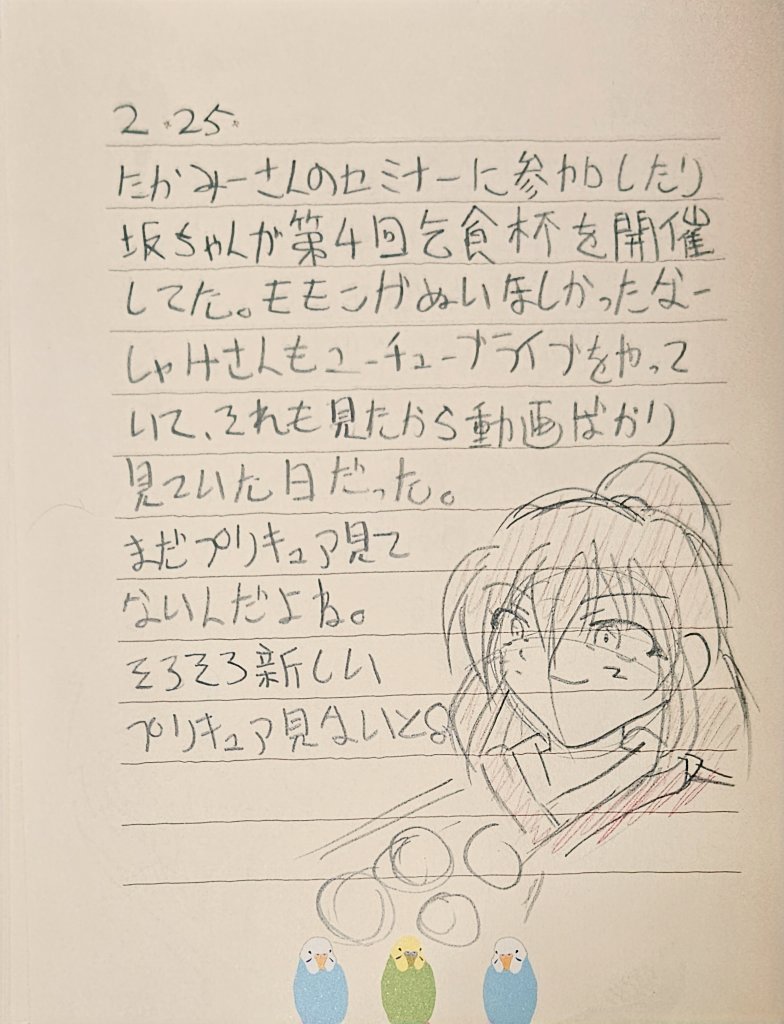 2.25.
たかみーさんのセミナーに参加したり
坂ちゃんが第4回乞食杯を開催
してた。ももこがぬいほしかったなー
しゃけさんもユーチューブライブをやって
いて、それも見たから動画ばかり
見ていた日だった。
まだプリキュア見て
ないんだよね。
そろそろ新しい
プリキュア見ないと。